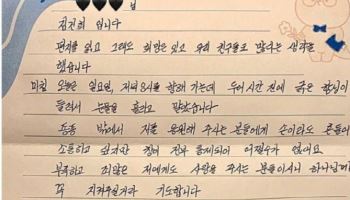 님
김건희 입니다
편지를 읽고 그래도 희망은 있고 우리 친구들도 많다는 생각을
했습니다
마침 오늘은 일요일, 저녁 8시를 향해 가는데 두어시간 전에 굵은 함성이
들려서 눈물을 흘리고 말았습니다
종종 밖에서 저를 응원해 주시는 분들에게 손이라도 흔들어
소통하고 싶지만 창비 전부 통제되어 어쩔수가 없어요.
부족하고 죄많은 저에게도 사랑을 주시는 분들이시니 하나님께
꼭 지켜주실거라 기도합니다